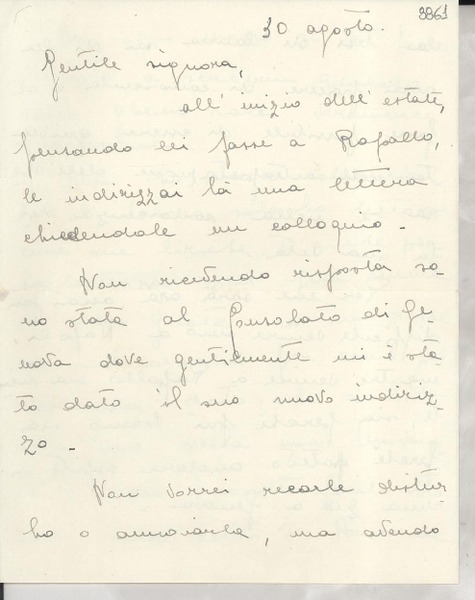 3861
30 agosto.
Gentile signora,
all' inizio dell' estate,
pensando lei fosse a Rapallo,
le indirizzai là una lettera
chiedendole un colloquio -
Non ricevendo risposta so-
no stata al Consolato di Ge
nova dove gentilmente mi è sta
to dato il suo nuovo indiriz
zo -
Non vorrei recarle distur
bo o annoiarla, ma avendo